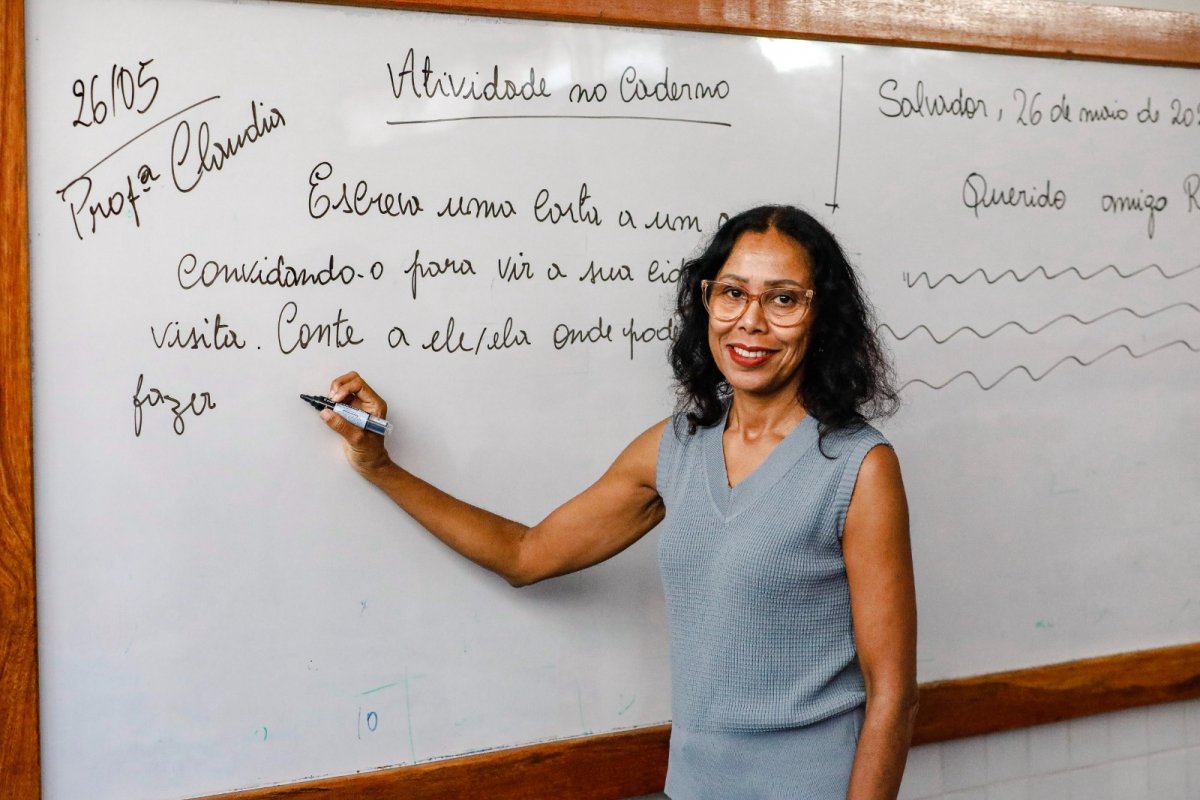 26/05
Profª Claudia
Atividade no Caderno
Escreva uma carta a um
Convidando-o para vir a sua
visita. Conte a ele/ela onde
fazer
10
Salvador, 26 de maio de
Querido amigo